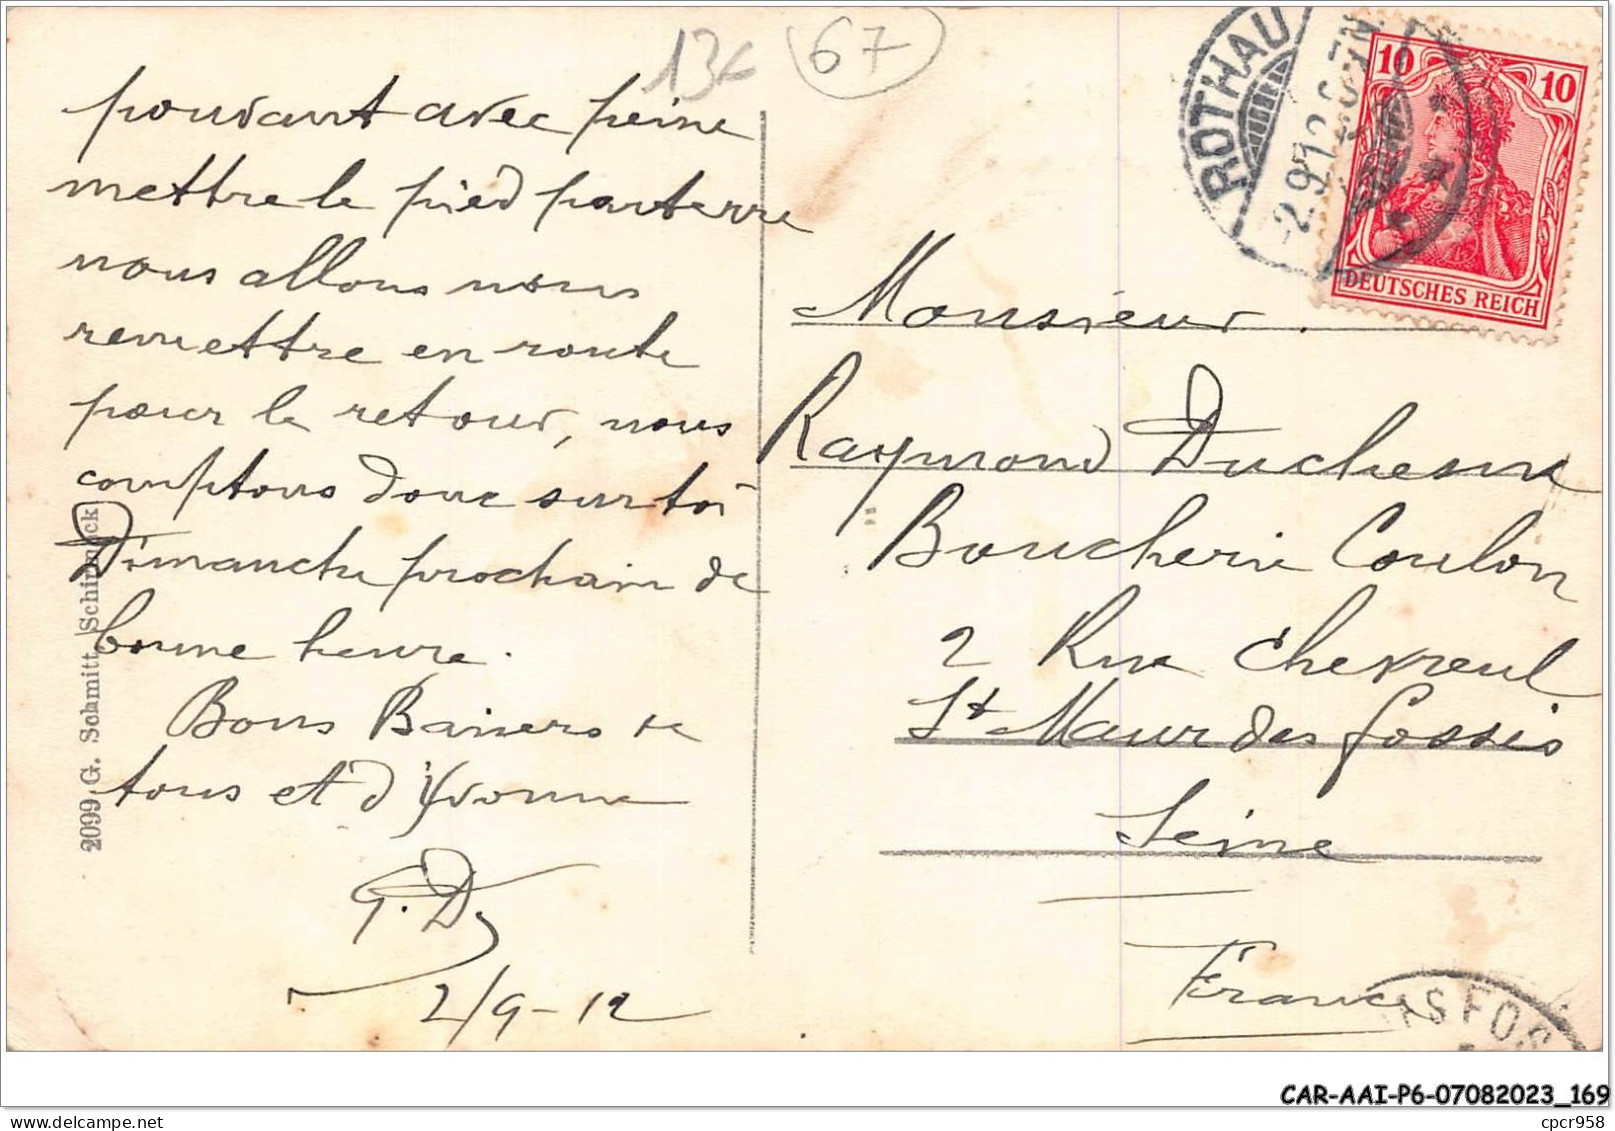 13€
67
pouvant avec peine
mettre le pied par terre
nous allons nous
remettre en route
pour le retour, nous
comptons donc sur toi
Dimanche prochain de
bonne heure.
Bons Baisers de
tous et d'Yvonne
G. D.
2/9-12
2099 G. Schmitt, Schirmeck
ROTHAU
2.9.12
10 10
DEUTSCHES REICH
Monsieur.
Raymond Duchesne
Boucherie Coulon
2 Rue Chevreul
St Maur des Fossés
Seine
France
SFOS
CAR-AAI-P6-07082023_169
cpcr958